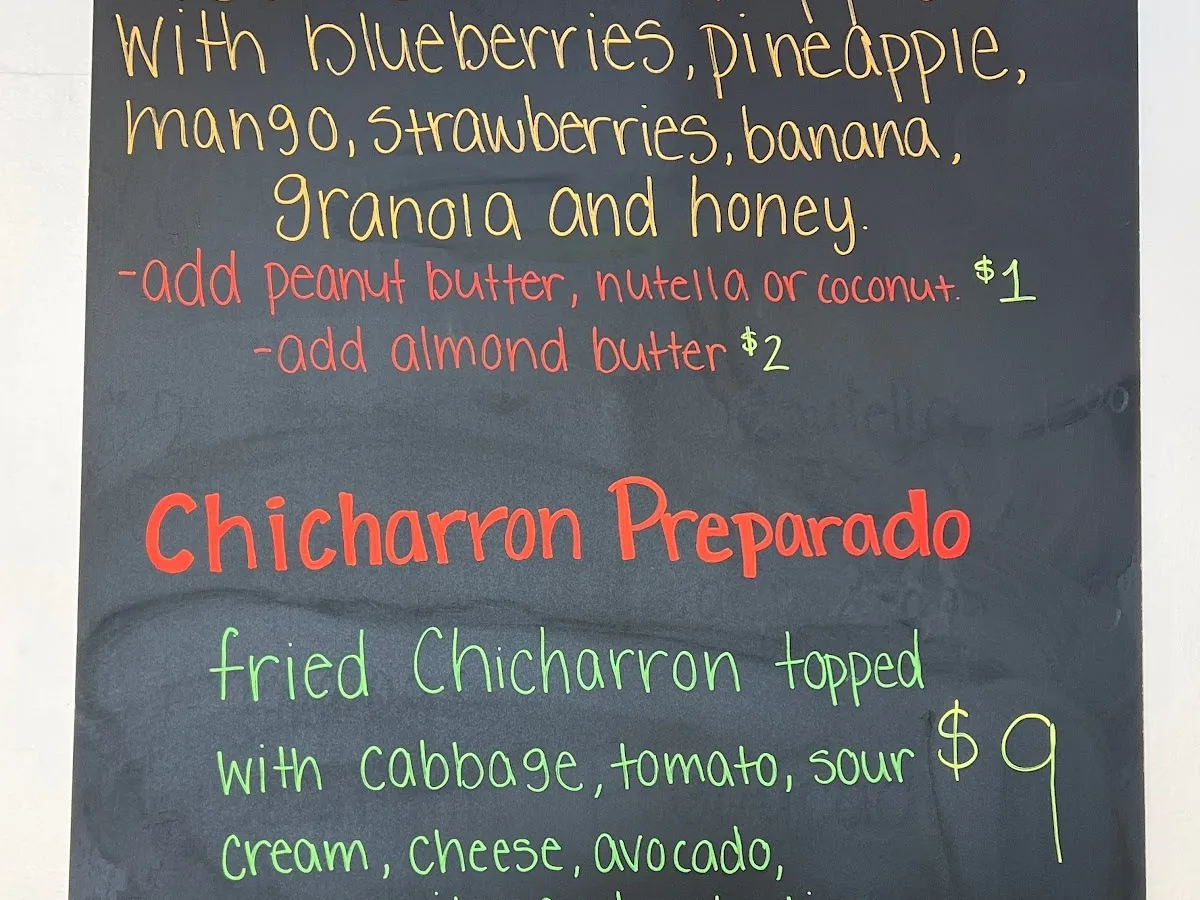 with blueberries, pineapple,
mango, strawberries, banana,
granola and honey.
-add peanut butter, nutella or coconut. $1
-add almond butter $2
Chicharron Preparado
fried Chicharron topped
with cabbage, tomato, sour $9
cream, cheese, avocado,